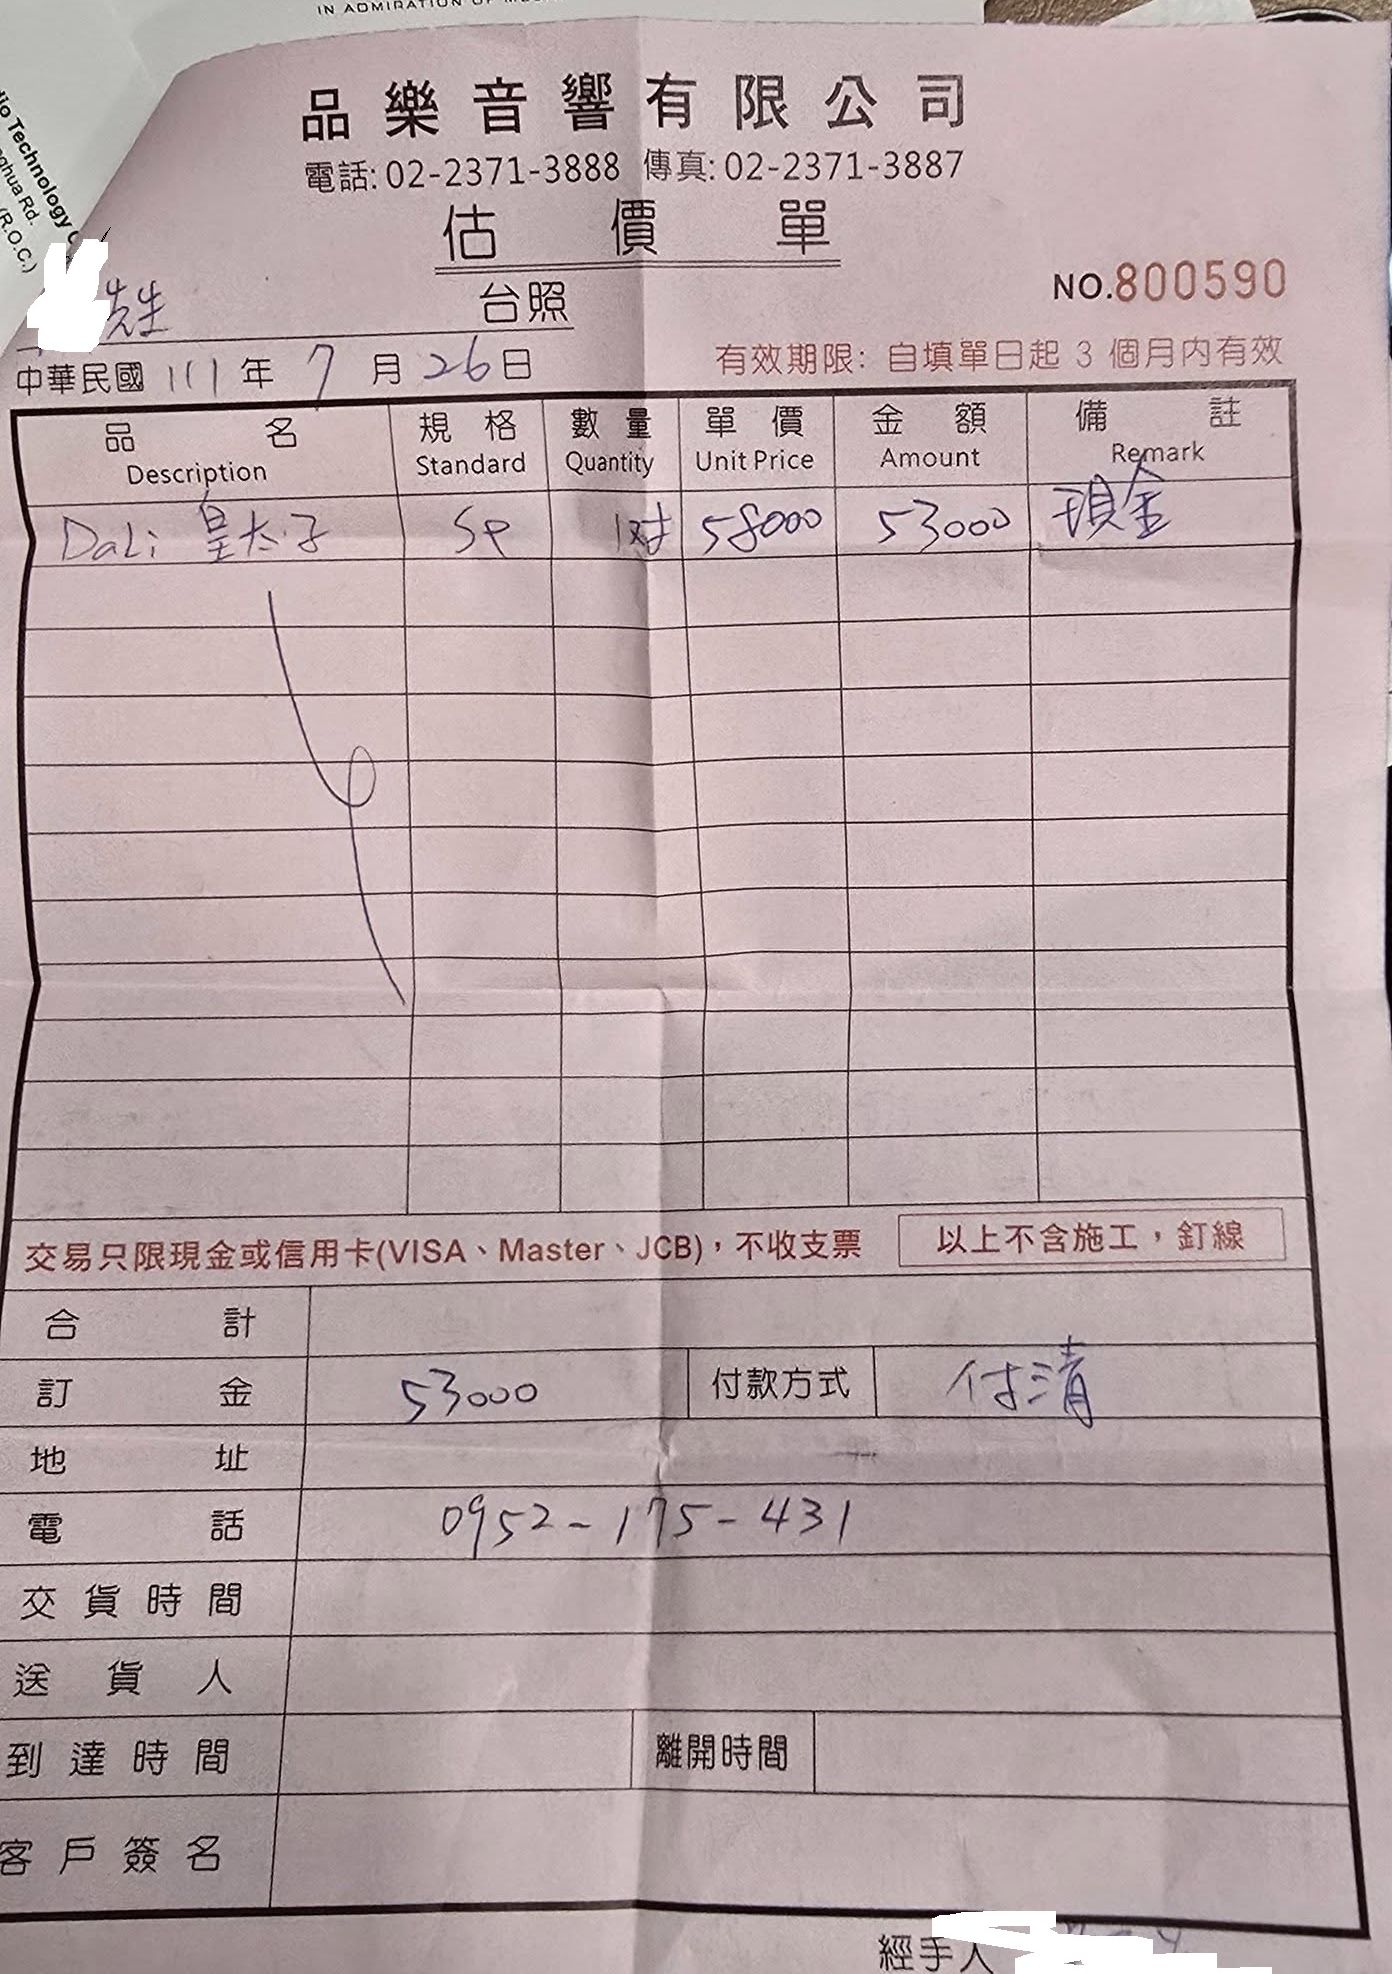 IN ADMIRATION OF
dio Technology
ghua Rd.
(R.O.C.)
品樂音響有限公司
電話: 02-2371-3888 傳真: 02-2371-3887
估價單
NO.800590
先生 台照
中華民國 111 年 7 月 26 日 有效期限: 自填單日起 3 個月內有效
品名 規格 數量 單價 金額 備註
Description Standard Quantity Unit Price Amount Remark
DaLi 皇太子 SP 1对 58000 53000 現金
交易只限現金或信用卡(VISA、Master、JCB)，不收支票 以上不含施工，釘線
合計
訂金 53000 付款方式 付清
地址
電話 0952-175-431
交貨時間
送貨人
到達時間 離開時間
客戶簽名
經手人